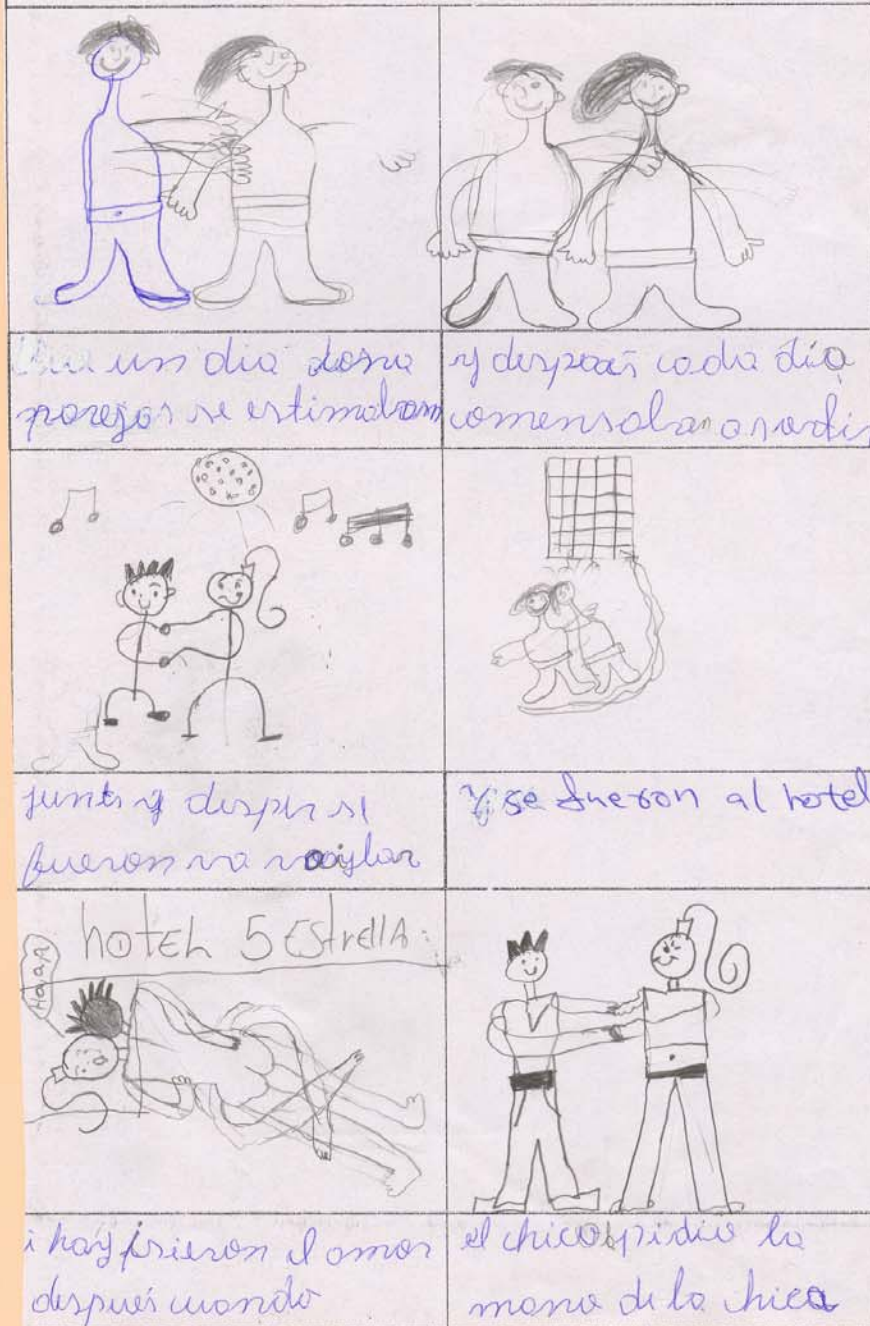 un dia dos
parejas se estimaban
y despues cada dia
comensaban a
junts y despues se
fueron a vaylar
y se fueron al hotel
hotEL 5 EStrellA
HaaA
i hay isieron el amor
despues cuando
el chico pidio la
mano de la chica